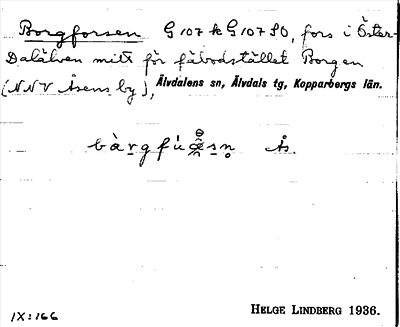 Borgforsen G 107 h G 107 SO, fors i Öster-
Dalälven mitt för fäbodstället Borgen
(NNV Åsens by), Älvdalens sn, Älvdals tg, Kopparbergs län.
Ås.
IX:166 HELGE LINDBERG 1936.